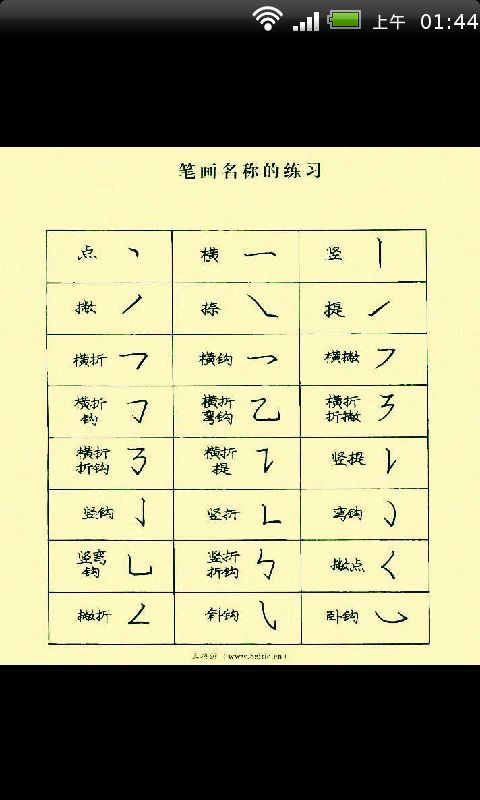 上午 01:44
笔画名称的练习
点 丶 横 一 竖 丨
撇 丿 捺 ㇏ 提 ㇀
横折 𠃍 横钩 乛 横撇 ㇇
横折钩 𠃌 横折弯钩 乙 横折折撇 ㇋
横折折钩 ㇌ 横折提 ㇊ 竖提 ㇙
竖钩 亅 竖折 ㇗ 弯钩 ㇁
竖弯钩 乚 竖折折钩 ㇉ 撇点 ㇛
撇折 ㇜ 斜钩 ㇂ 卧钩 ㇃